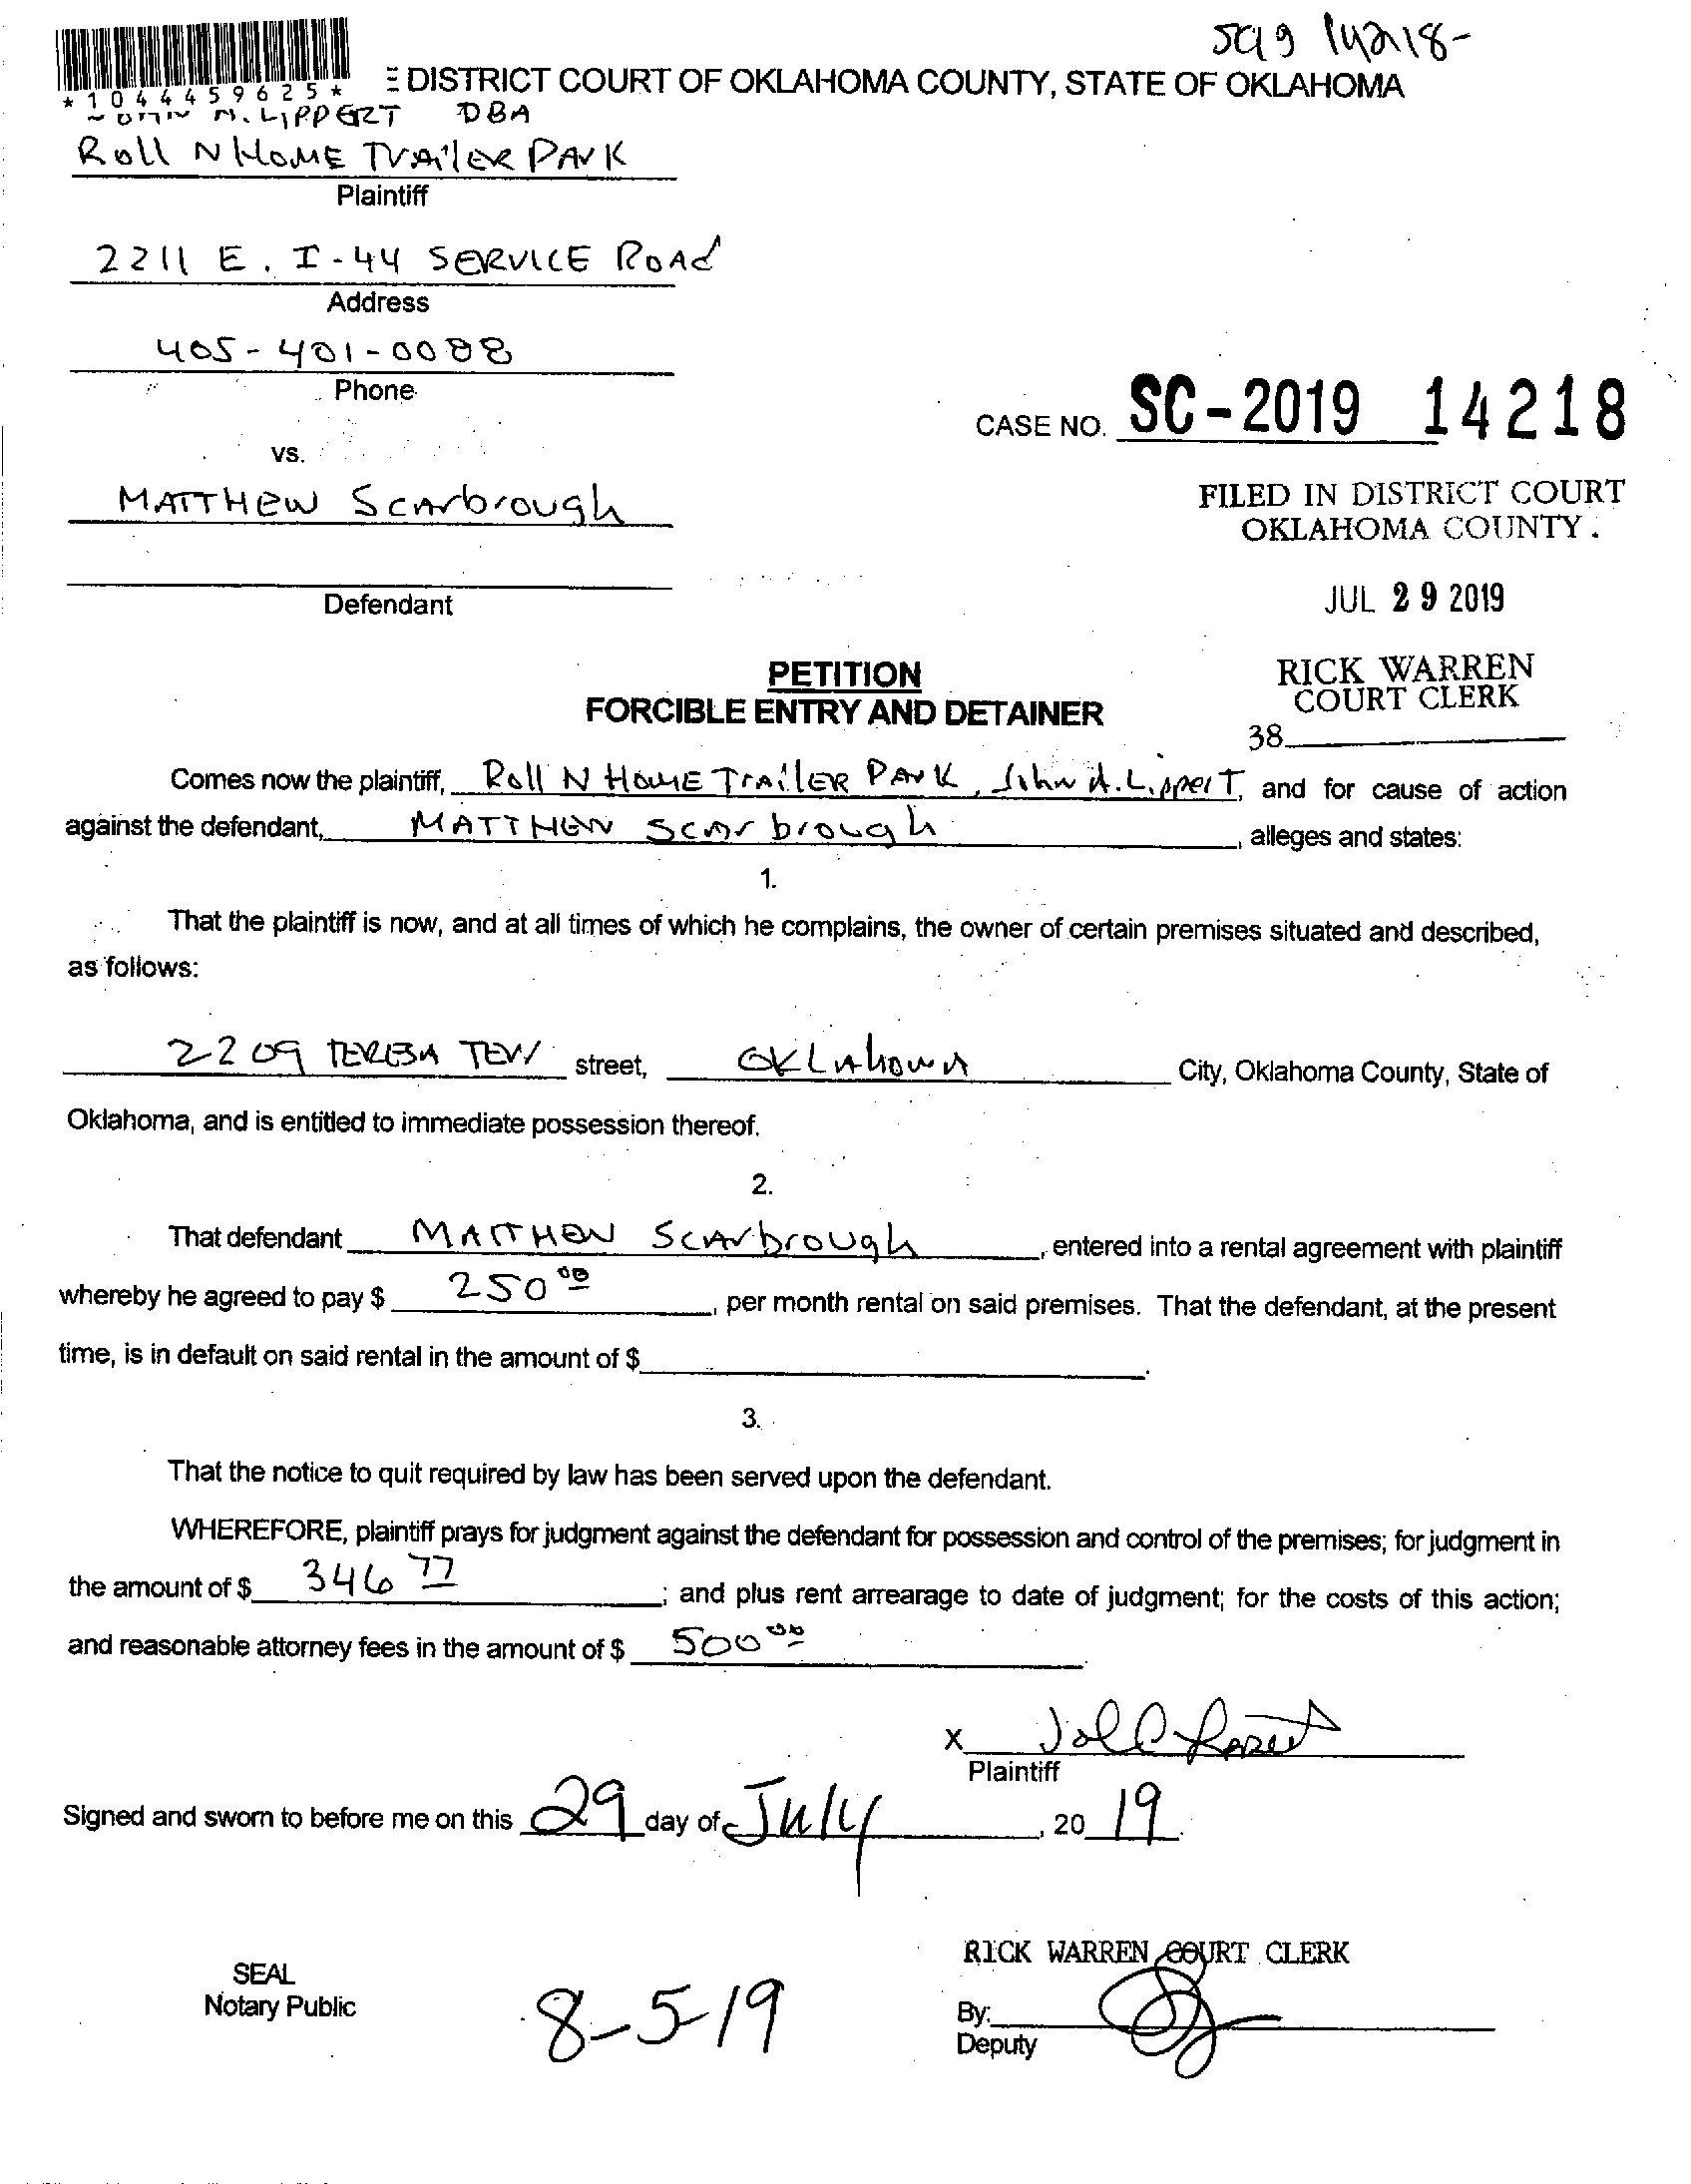 SC19 14218-
DISTRICT COURT OF OKLAHOMA COUNTY, STATE OF OKLAHOMA
*1044459625*
M. LIPPERT DBA
Roll N HOME TrAilER PArK
Plaintiff
2211 E. I-44 SERVICE ROAd
Address
405-401-0088
Phone
CASE NO. SC-2019 14218
vs.
MATTHEW Scarbrough
FILED IN DISTRICT COURT
OKLAHOMA COUNTY.
Defendant
JUL 29 2019
PETITION
RICK WARREN
COURT CLERK
FORCIBLE ENTRY AND DETAINER
38
Comes now the plaintiff, Roll N HOME TrAilER PArK, John A. LipperT, and for cause of action
against the defendant, MATTHEW Scarbrough, alleges and states:
1.
That the plaintiff is now, and at all times of which he complains, the owner of certain premises situated and described,
as follows:
2209 TERESA TEW street, OKLAhomA City, Oklahoma County, State of
Oklahoma, and is entitled to immediate possession thereof.
2.
That defendant MATTHEW Scarbrough, entered into a rental agreement with plaintiff
whereby he agreed to pay $ 250 00, per month rental on said premises. That the defendant, at the present
time, is in default on said rental in the amount of $.
3.
That the notice to quit required by law has been served upon the defendant.
WHEREFORE, plaintiff prays for judgment against the defendant for possession and control of the premises; for judgment in
the amount of $ 346 77; and plus rent arrearage to date of judgment; for the costs of this action;
and reasonable attorney fees in the amount of $ 500 00.
X
Plaintiff
Signed and sworn to before me on this 29 day of July, 20 19.
RICK WARREN COURT CLERK
SEAL
Notary Public
8-5-19
By:
Deputy